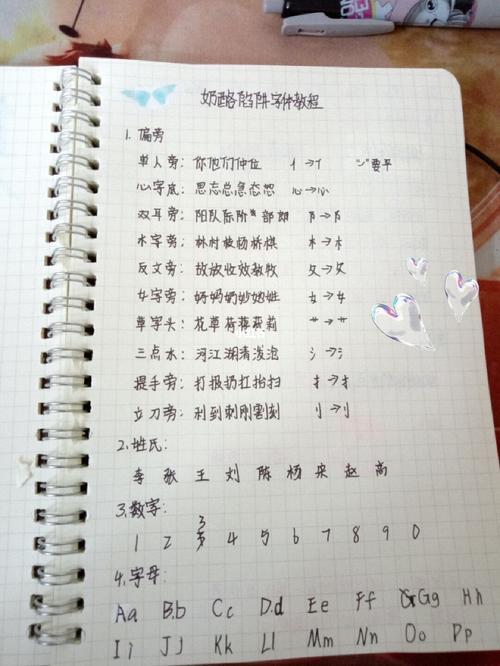 奶酪陷阱字体教程
1. 偏旁
单人旁：你他们仲位 亻→亻 "ツ"要平
心字底：思忘总急态怨 心→心
双耳旁：阳队际阶 部郎 阝→阝
木字旁：林村板杨桥棋 木→木
反文旁：故放收效教牧 攵→攵
女字旁：好妈奶妙她姓 女→女
草字头：花草荷蒋莉 艹→艹
三点水：河江湖清浅泡 氵→氵
提手旁：打报扔扛抬扫 扌→扌
立刀旁：利到刺刚割刻 刂→刂
2. 姓氏：
李 张 王 刘 陈 杨 宋 赵 高
3. 数字：
1 2 3 4 5 6 7 8 9 0
4. 字母：
Aa Bb Cc Dd Ee Ff Gg Hh
Ii Jj Kk Ll Mm Nn Oo Pp